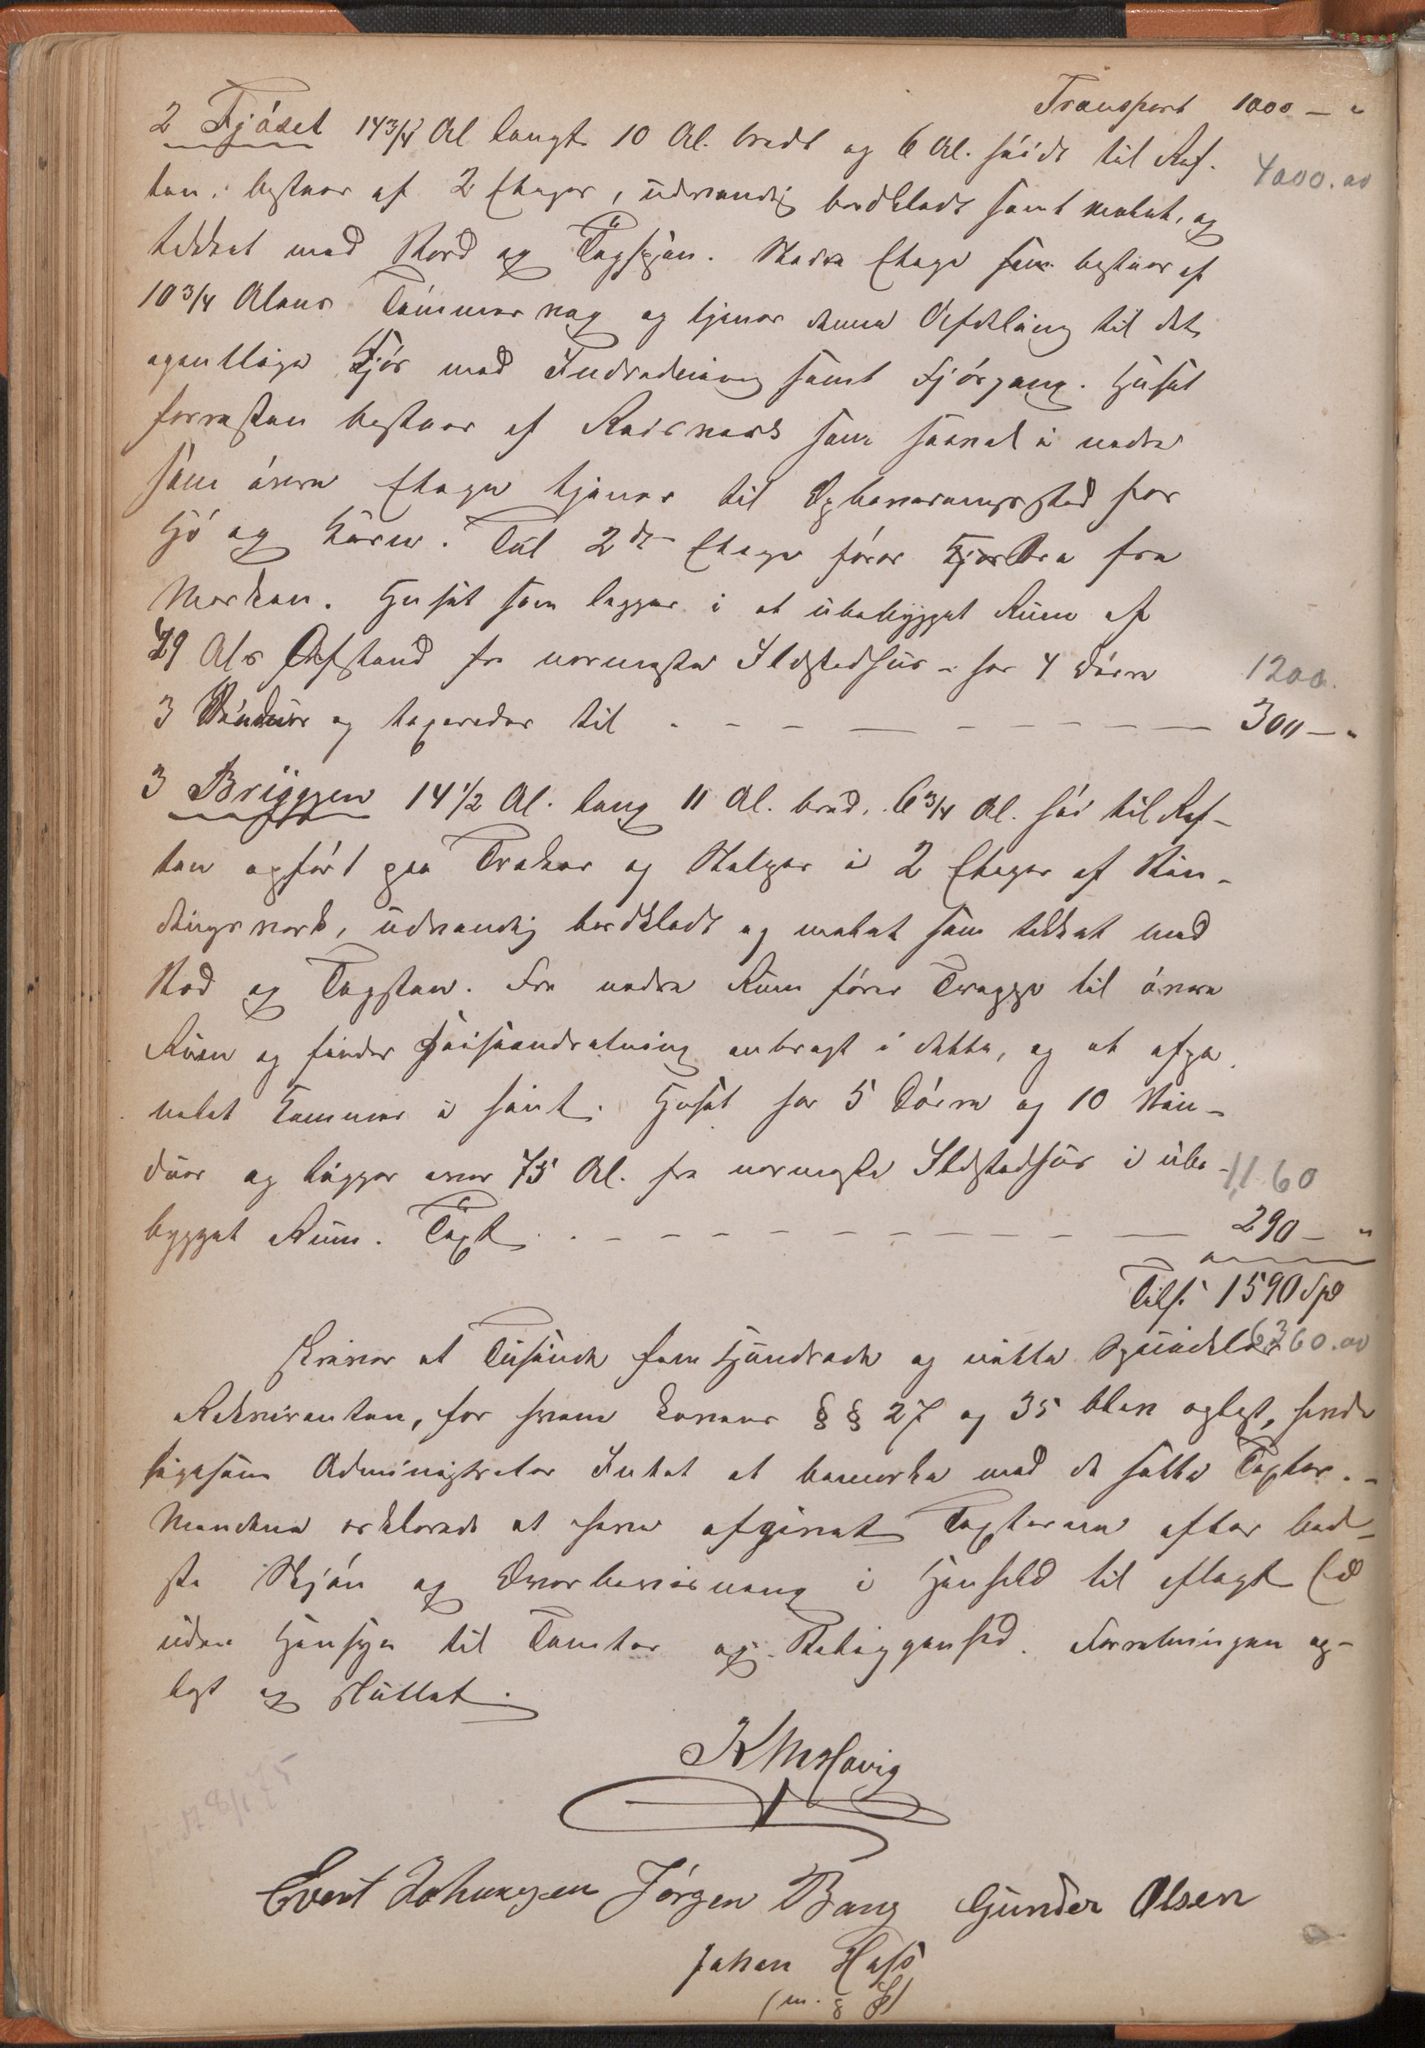 Transport 1000 — "
2 Fjöset 14 3/4 Al langt 10 Al. bredt og 6 Al. høidt til Raf-
4000.00
ten. bestaar af 2 Etager, udvendig bordklædt samt malet, og
tækket med Nord og Tagspjön. Nedre Etage som bestaar af
10 3/4 Alens Tømmer væg og tjener denne Afdeling til det
egentlige Fjös med Indredning samt Fjørgang. Huset
forresten bestaar af Reisværk som saavel i nedre
som øvre Etage tjener til Opbevaringssted for
Hø og Korn. Til 2de Etage fører Kjørebro fra
Marken. Huset som ligger i et ubebygget Rum af
29 Al's Afstand fra nærmeste Ildstedshus - har 4 Dørre
1200.
3 Vinduer og taxeredes til - - - - - - - 300 — "
3 Bryggen 14 1/2 Al. lang 11 Al. bred, 6 3/4 Al. høi til Raf-
ten opført paa Trækar og Stolper i 2 Etager af Bin-
dingsværk, udvendig bordklædt og malet som tækket med
Næv og Tagsten. Fra nedre Rum fører Trappe til øvre
Rum og findes Heiseindretning anbragt i dette, og et afpa-
nelet Kammer i samt. Huset har 5 Dörre og 10 Vin-
duer og ligger over 75 Al. fra nærmeste Ildstedshus i ube-
1160
bygget Rum. Taxt - - - - - - - - 290 — "
Tils. 1590 Spd
Skriver et Tusinde fem Hundrede og nitti Speciedaler
6360.00
Rekvirenten, for hvem Lovens §§ 27 og 35 blev oplæst, havde
ligesom Administrator Intet at bemærke med de satte Taxter. -
Mændene erklærede at have afgivet Taxterne efter bed-
ste Skjøn og Overbeviisning i Henhold til aflagt Ed
uden Hensyn til Tomter og Beliggenhed. Forretningen op-
læst og sluttet.
K M Havig
Evert Johnsen Jörgen Bang Gunder Olsen
Johan Hass
(m. p. P.)